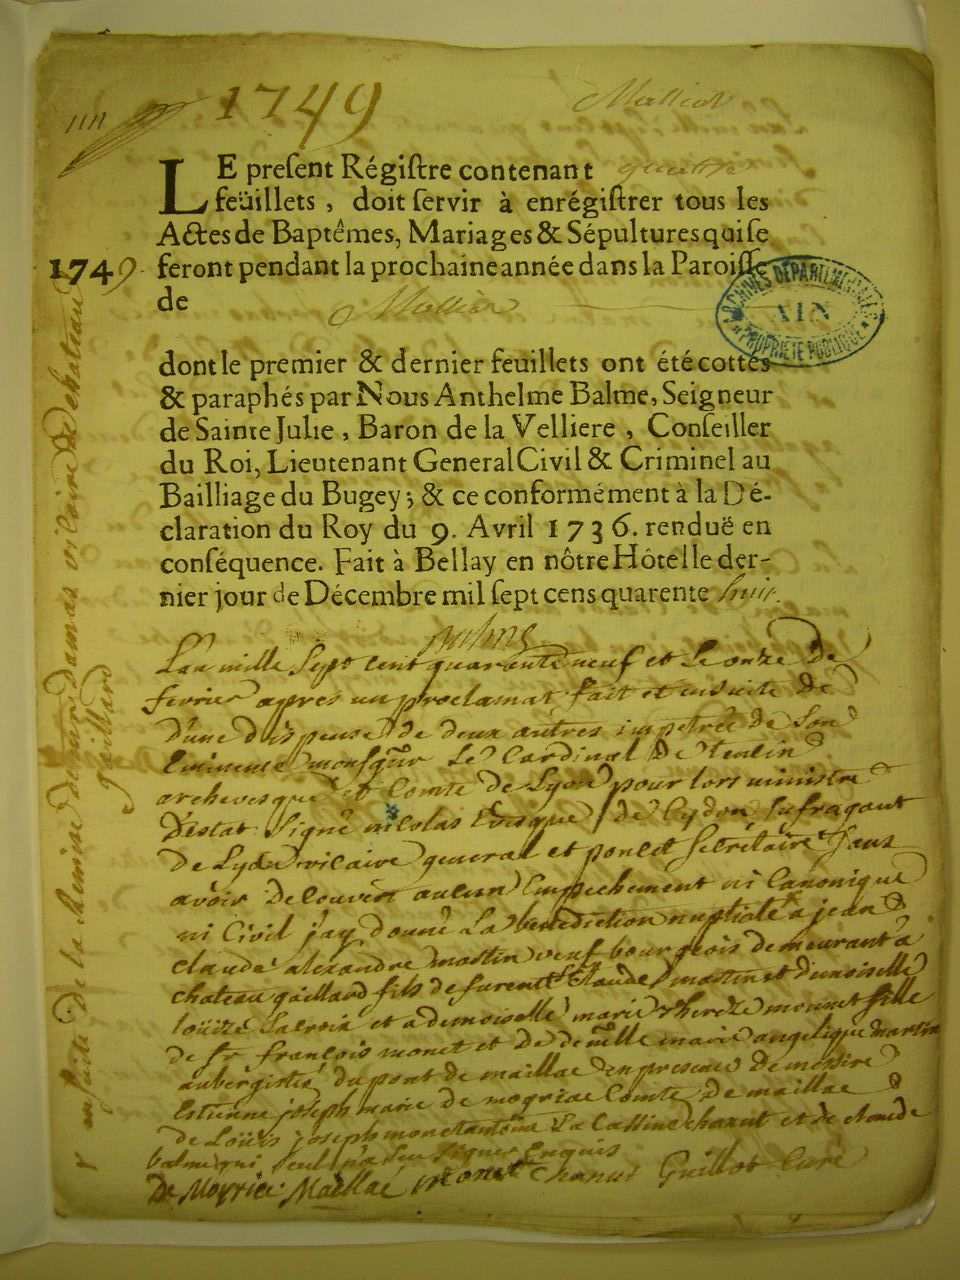 1749
LE preſent Régiſtre contenant
feüillets, doit ſervir à enrégiſtrer tous les
Actes de Baptêmes, Mariages & Sépultures qui ſe
1749. feront pendant la prochaine année dans la Paroiſſe
de
ARCHIVES DÉPARTEMENTALES
AIN
PROPRIÉTÉ PUBLIQUE
dont le premier & dernier feuillets ont été cottés
& paraphés par Nous Anthelme Balme, Seigneur
de Sainte Julie, Baron de la Velliere, Conſeiller
du Roi, Lieutenant General Civil & Criminel au
Bailliage du Bugey; & ce conformément à la Dé-
claration du Roy du 9. Avril 1736. renduë en
conſéquence. Fait à Bellay en nôtre Hôtel le der-
nier jour de Décembre mil ſept cens quarente huit.
Balme
L'an mille Sept cent quarente neuf et Le onze de
fevrier apres un proclamat fait et ensuite de
D'une dispense de deux autres impetrée de Son
Eminence monsgur Le Cardinal De tencin
archevesque et Comte de Lyon pour lors ministre
Destat Signé nicolas Evesque de Cydon Sufragant
de Lyon vicaire general et poncet Secrétaire Sans
avoir Decouvert aucun Empechement ni Canonique
ni Civil j'ay donné La benediction nuptiale a jean
claude alexandre martin veuf bourgeois demeurant a
chateau gaillard fils de furent Claude martin et dmoiselle
Loüize Lacroix et a demoiselle marie thereze monnet fille
de Sr françois monet et de demlle marie angelique martin
aubergiste du pont de maillac en presence De messire
Estienne joseph marie de mogriac Comte De maillac
de Loüis joseph monet antoine La Cassine chanut et de claude
balme qui Seul n'a Su Signer Enquis
De Moyria Maillac monet Chanut Guillot Curé